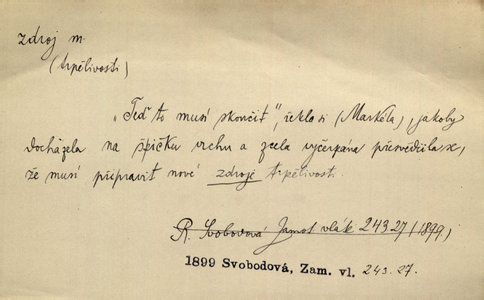 zdroj m.
(trpělivosti)
„Teď to musí skončit“, řekla si (Markéta), jakoby
docházela na špičku vrchu a zcela vyčerpána přesvědčila se,
že musí připravit nové zdroje trpělivosti.
R. Svobodová Zamot vlák 243.27 (1899)
1899 Svobodová, Zam. vl. 243.27.